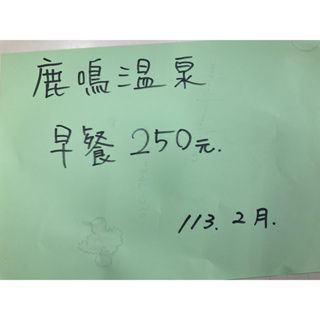 鹿鳴溫泉
早餐 250元.
113. 2月.